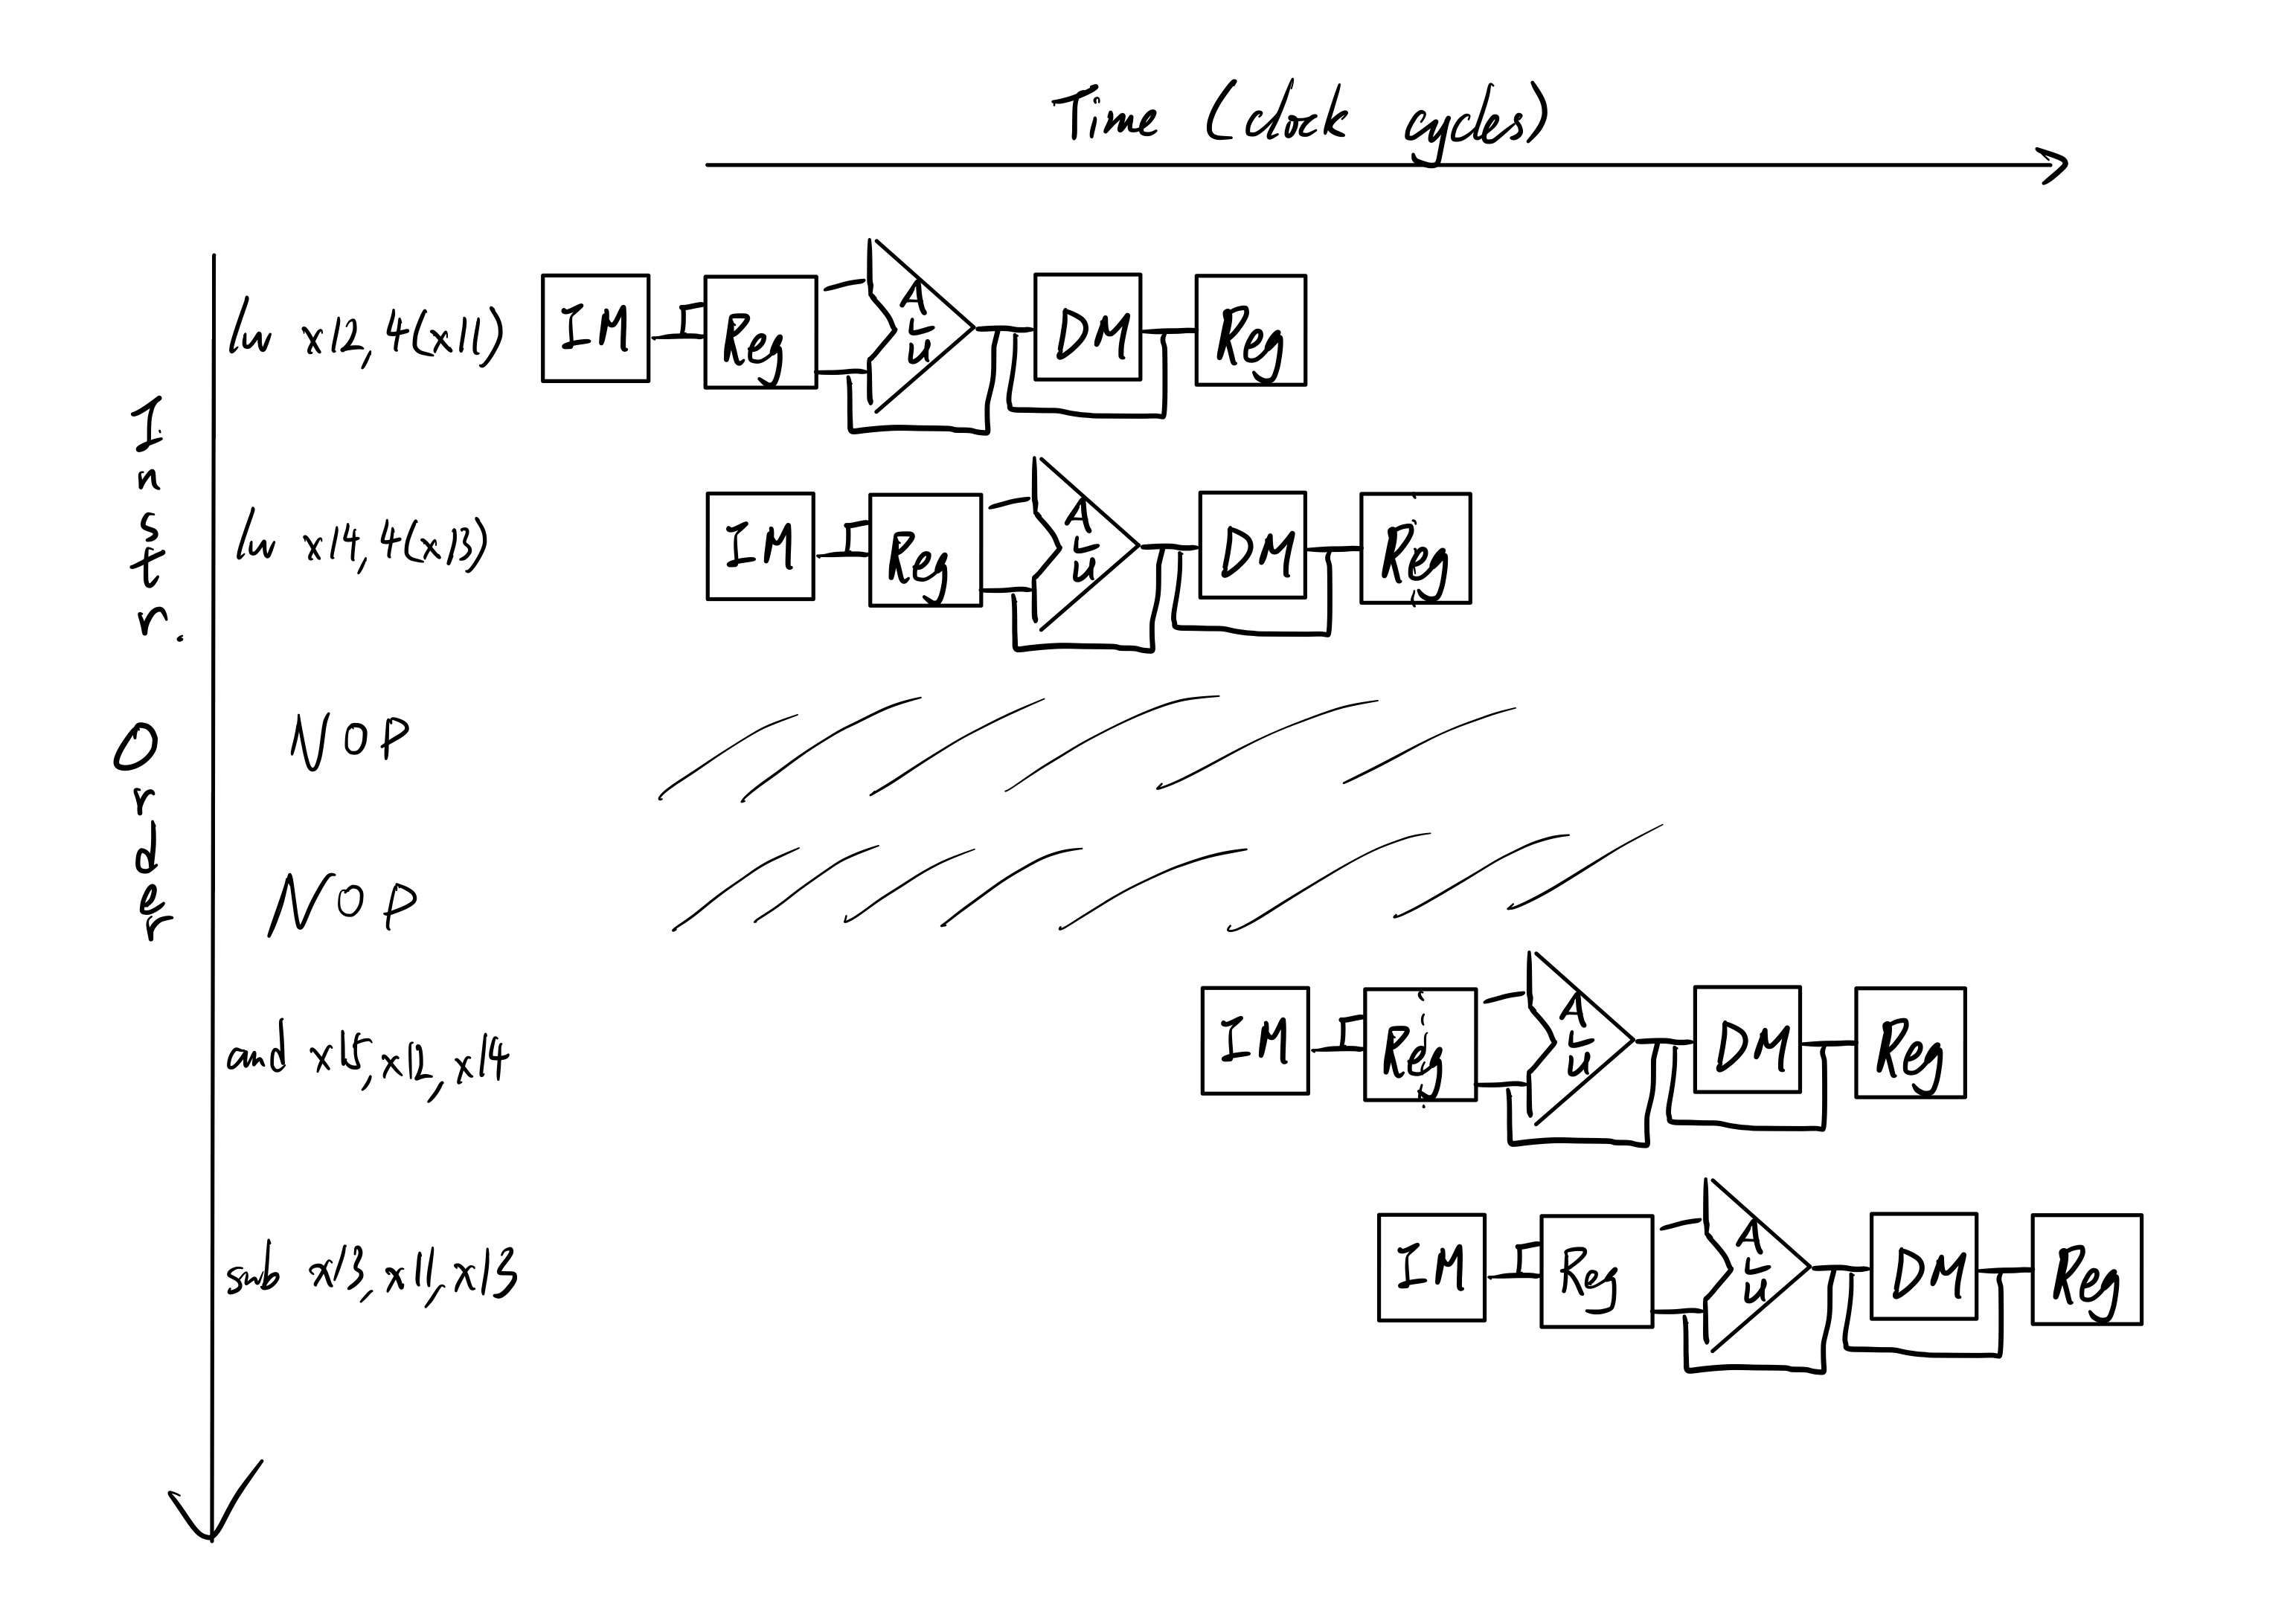 Time (clock cycles)
Instr. Order
lw x12, 4(x11) IM Reg ALU DM Reg
lw x14, 4(x13) IM Reg ALU DM Reg
NOP
NOP
and x15, x12, x14 IM Reg ALU DM Reg
sub x13, x11, x13 IM Reg ALU DM Reg